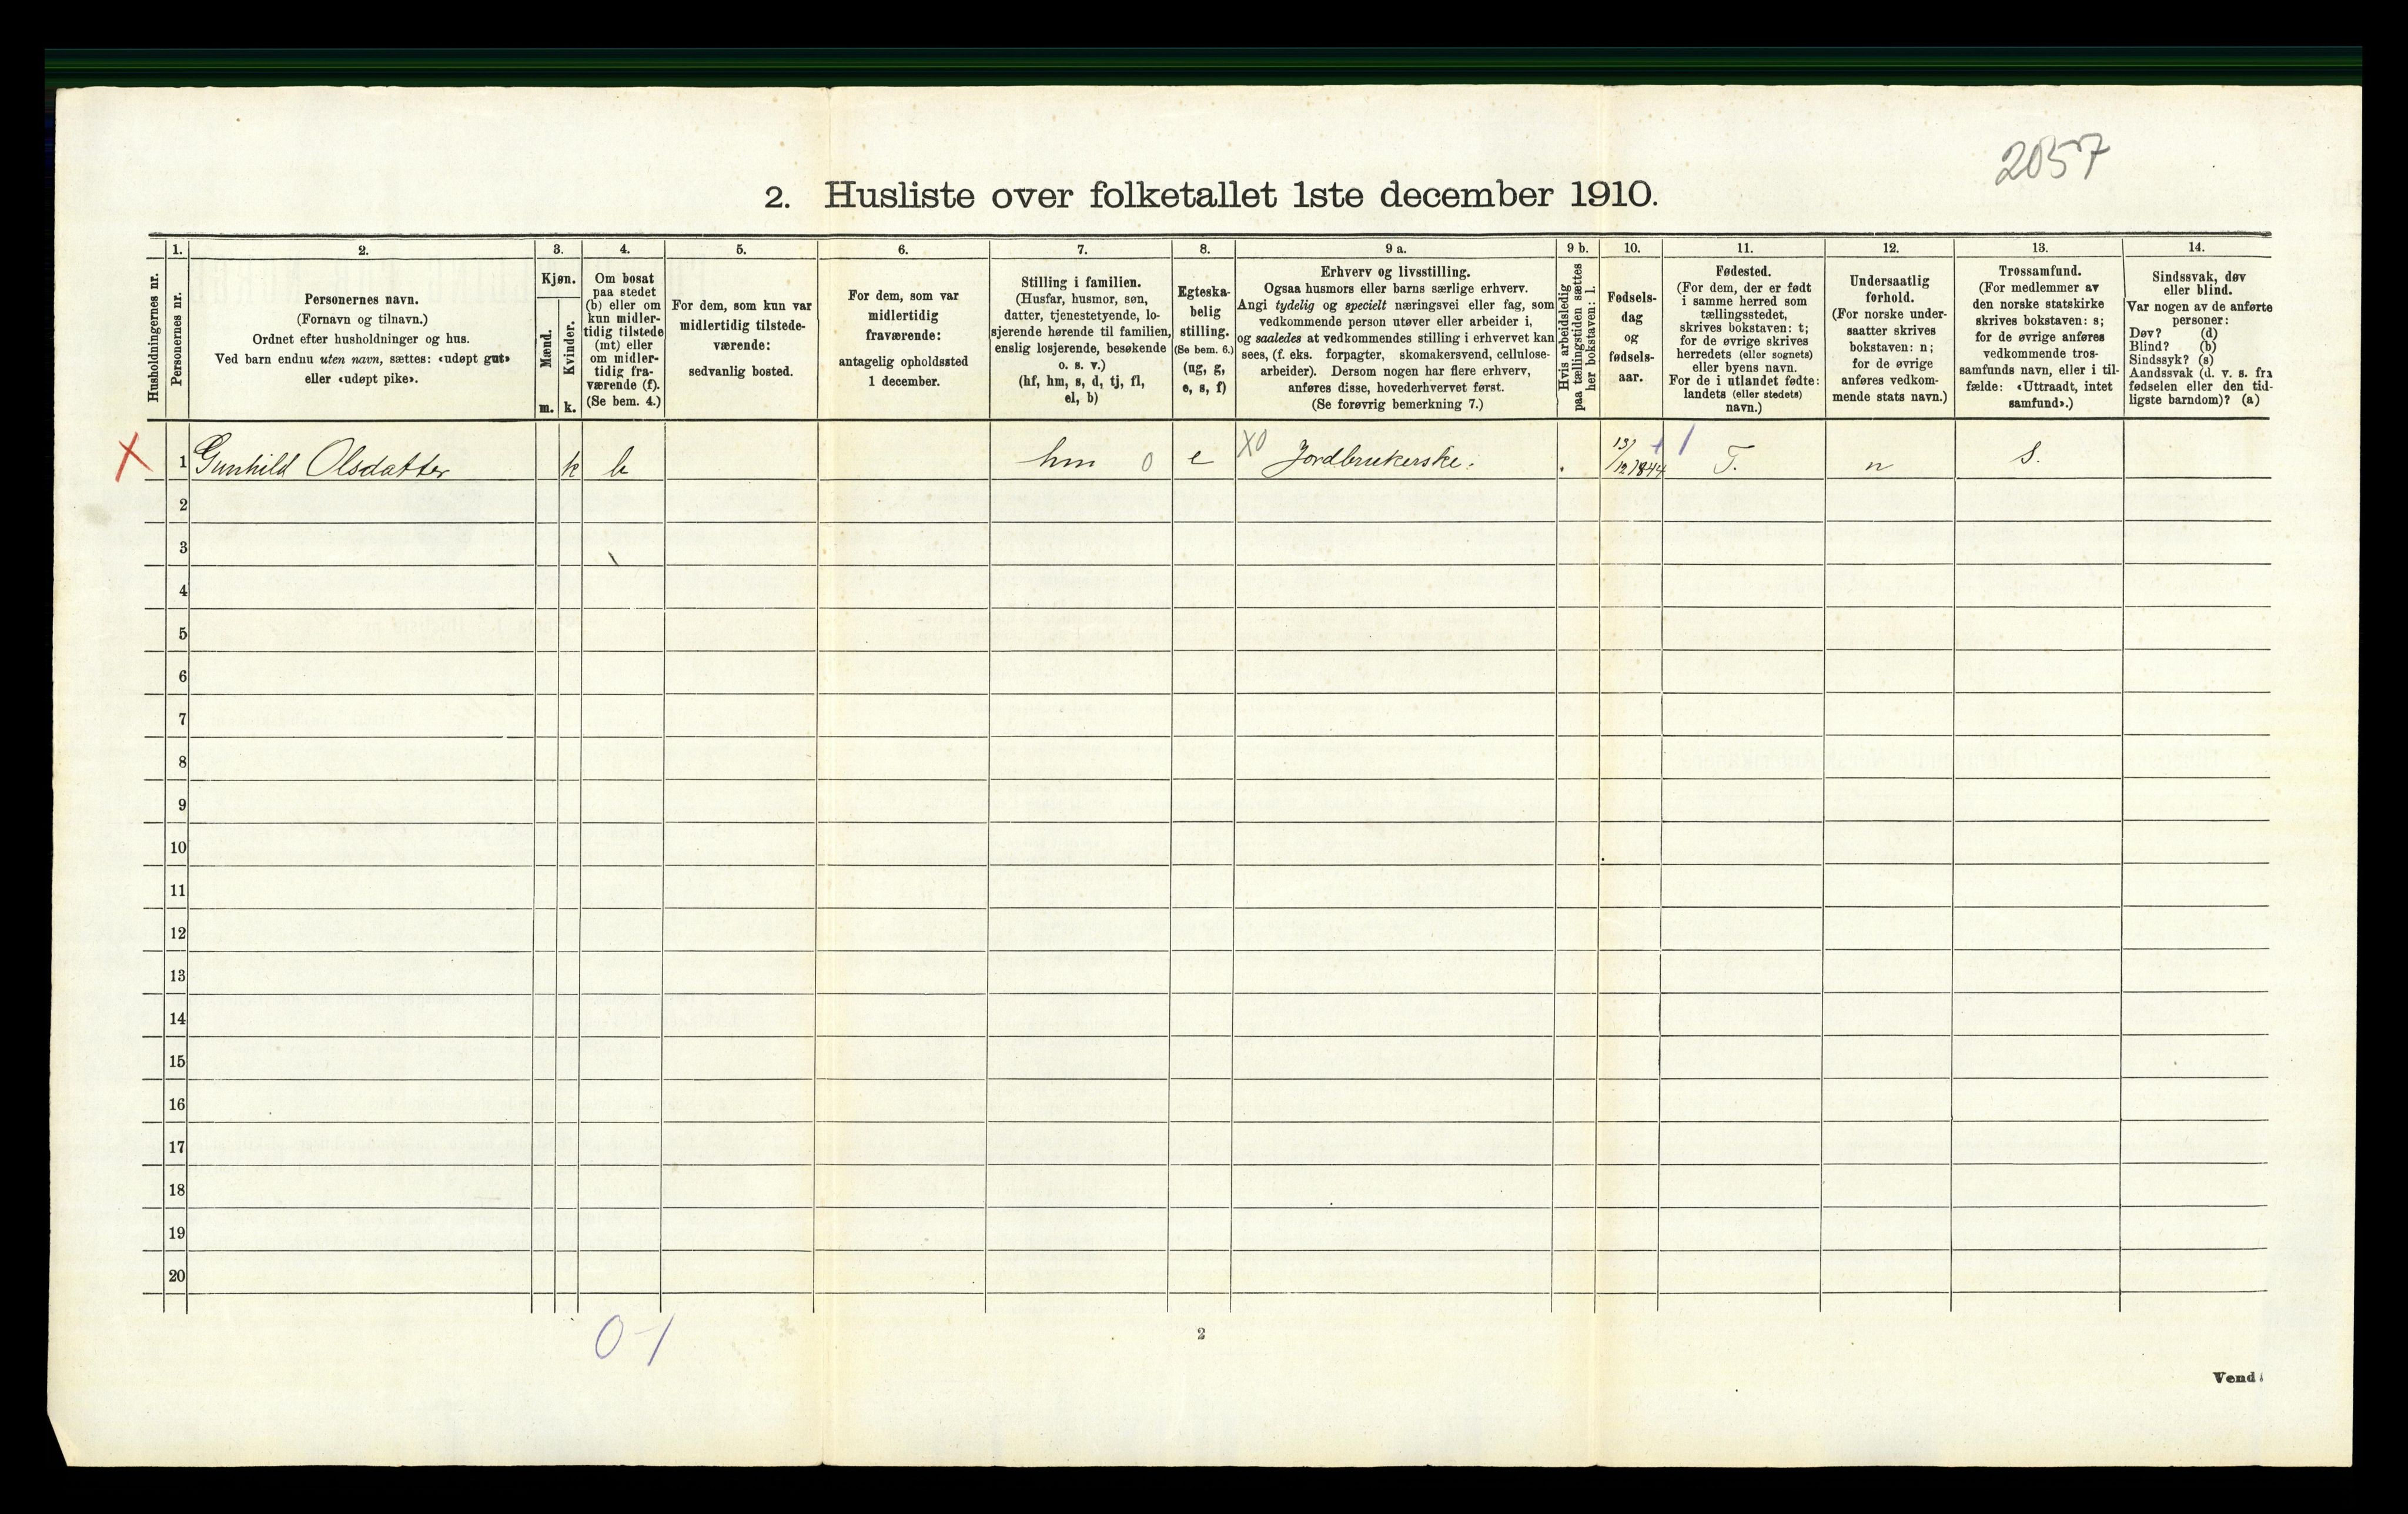 2057
2. Husliste over folketallet 1ste december 1910.
Husholdningernes nr.
1.
Personernes nr.
2.
Personernes navn.
(Fornavn og tilnavn.)
Ordnet efter husholdninger og hus.
Ved barn endnu uten navn, sættes: «udøpt gut»
eller «udøpt pike».
3.
Kjøn.
Mænd.
m.
Kvinder.
k.
4.
Om bosat
paa stedet
(b) eller om
kun midler-
tidig tilstede
(mt) eller
om midler-
tidig fra-
værende (f).
(Se bem. 4.)
5.
For dem, som kun var
midlertidig tilstede-
værende:
sedvanlig bosted.
6.
For dem, som var
midlertidig
fraværende:
antagelig opholdssted
1 december.
7.
Stilling i familien.
(Husfar, husmor, søn,
datter, tjenestetyende, lo-
sjerende hørende til familien,
enslig losjerende, besøkende
o. s. v.)
(hf, hm, s, d, tj, fl,
el, b)
8.
Egteska-
belig
stilling.
(Se bem. 6.)
(ug, g,
e, s, f)
9 a.
Erhverv og livsstilling.
Ogsaa husmors eller barns særlige erhverv.
Angi tydelig og specielt næringsvei eller fag, som
vedkommende person utøver eller arbeider i,
og saaledes at vedkommendes stilling i erhvervet kan
sees, (f. eks. forpagter, skomakersvend, cellulose-
arbeider). Dersom nogen har flere erhverv,
anføres disse, hovederhvervet først.
(Se forøvrig bemerkning 7.)
9 b.
Hvis arbeidsledig
paa tællingstiden sættes
her bokstaven: l.
10.
Fødsels-
dag
og
fødsels-
aar.
11.
Fødested.
(For dem, der er født
i samme herred som
tællingsstedet,
skrives bokstaven: t;
for de øvrige skrives
herredets (eller sognets)
eller byens navn.
For de i utlandet fødte:
landets (eller stedets)
navn.)
12.
Undersaatlig
forhold.
(For norske under-
saatter skrives
bokstaven: n;
for de øvrige
anføres vedkom-
mende stats navn.)
13.
Trossamfund.
(For medlemmer av
den norske statskirke
skrives bokstaven: s;
for de øvrige anføres
vedkommende tros-
samfunds navn, eller i til-
fælde: «Uttraadt, intet
samfund».)
14.
Sindssvak, døv
eller blind.
Var nogen av de anførte
personer:
Døv? (d)
Blind? (b)
Sindssyk? (s)
Aandssvak (d. v. s. fra
fødselen eller den tid-
ligste barndom)? (a)
X 1 Gunhild Olsdatter k b hm 0 e X0 Jordbrukerske. 13/12 1844 +1 T. n S.
2
3
4
5
6
7
8
9
10
11
12
13
14
15
16
17
18
19
20
0-1
2
Vend!